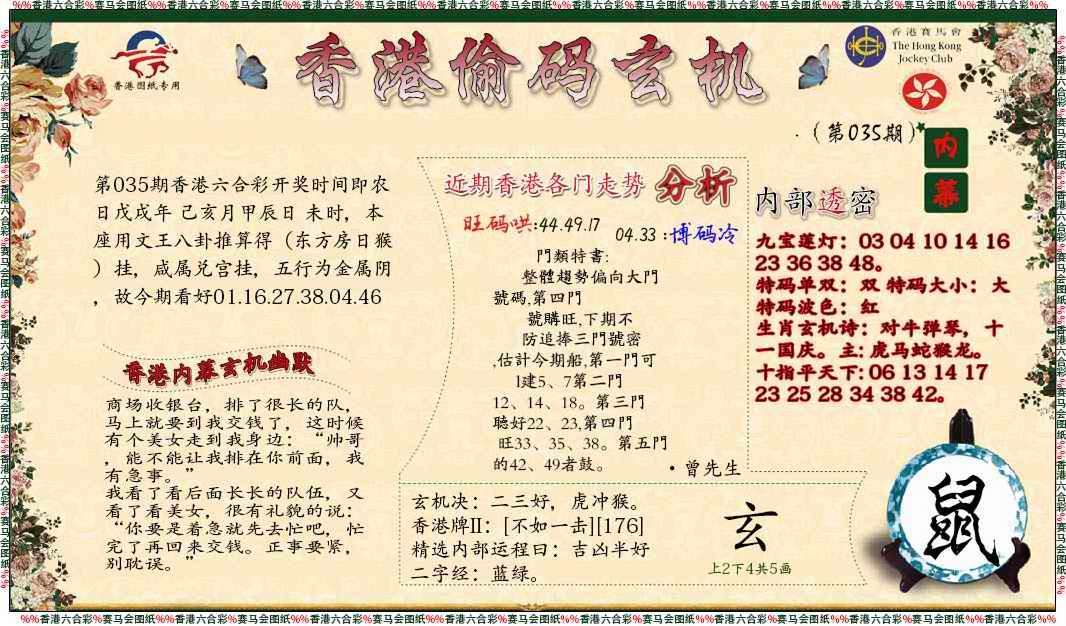 %%香港六合彩%赛马会图纸%%香港六合彩%赛马会图纸%%香港六合彩%赛马会图纸%%香港六合彩%赛马会图纸%%香港六合彩%赛马会图纸%%香港六合彩%赛马会图纸%%香港六合彩%%
香港图纸专用
香港偷码玄机
香港賽馬會
The Hong Kong
Jockey Club
·（第035期）
内幕
第035期香港六合彩开奖时间即农
日戊戌年 己亥月甲辰日 未时，本
座用文王八卦推算得（东方房日猴
）挂，咸属兑宫挂，五行为金属阴
，故今期看好01.16.27.38.04.46
香港内幕玄机幽默
商场收银台，排了很长的队，
马上就要到我交钱了，这时候
有个美女走到我身边：“帅哥
，能不能让我排在你前面，我
有急事。”
我看了看后面长长的队伍，又
看了看美女，很有礼貌的说：
“你要是着急就先去忙吧，忙
完了再回来交钱。正事要紧，
别耽误。”
近期香港各门走势 分析
旺码哄:44.49.17
04.33 :博码冷
門類特書:
整體趨勢偏向大門
號碼,第四門
號購旺,下期不
防追捧三門號密
,估計今期船,第一門可
l建5、7第二門
12、14、18。第三門
聽好22、23,第四門
旺33、35、38。第五門
的42、49者鼓。
·曾先生
内部透密
九宝莲灯：03 04 10 14 16
23 36 38 48。
特码单双：双 特码大小：大
特码波色：红
生肖玄机诗：对牛弹琴，十
一国庆。主: 虎马蛇猴龙。
十指平天下: 06 13 14 17
23 25 28 34 38 42。
玄机决：二三好，虎冲猴。
香港牌II：[不如一击][176]
精选内部运程曰：吉凶半好
二字经：蓝绿。
玄
上2下4共5画
鼠
%%香港六合彩%赛马会图纸%%香港六合彩%赛马会图纸%%香港六合彩%赛马会图纸%%香港六合彩%赛马会图纸%%香港六合彩%赛马会图纸%%香港六合彩%赛马会图纸%%香港六合彩%%